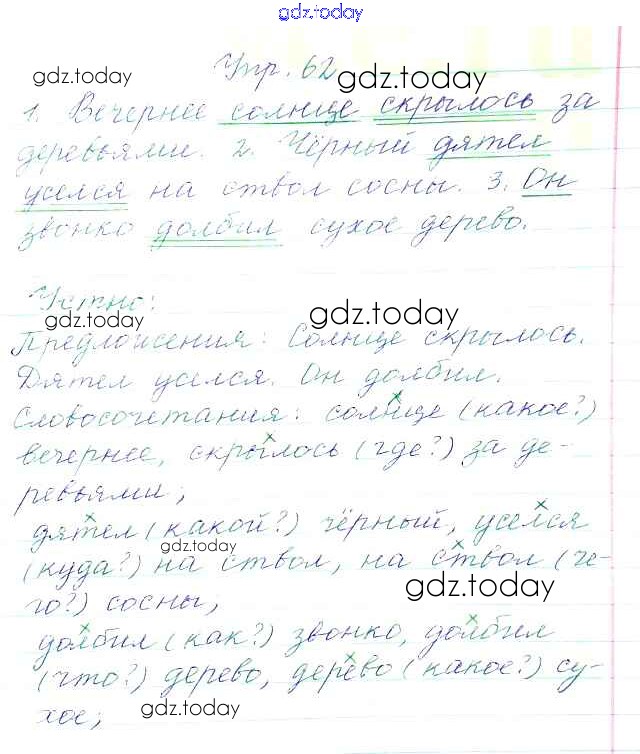 gdz.today
Упр. 62
gdz.today gdz.today
1. Вечернее солнце скрылось за
деревьями. 2. Чёрный дятел
уселся на ствол сосны. 3. Он
звонко долбил сухое дерево.
Устно:
gdz.today gdz.today
Предложения: Солнце скрылось.
Дятел уселся. Он долбил.
Словосочетания: солнце (какое?)
вечернее, скрылось (где?) за де-
ревьями;
дятел (какой?) чёрный, уселся
gdz.today
(куда?) на ствол, на ствол (че-
gdz.today
го?) сосны;
долбил (как?) звонко, долбил
(что?) дерево, дерево (какое?) су-
хое;
gdz.today gdz.today